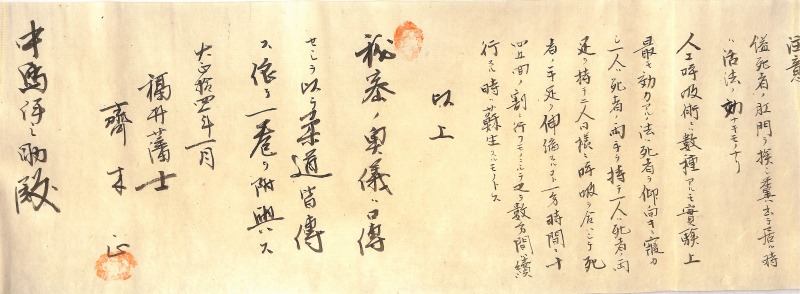 注意
縊死者ノ肛門ヲ撿シ糞出テ居ル時
ハ活法ノ効ナキモノナリ
人工呼吸術ニ数種アルモ實驗上
最モ効力アル法ハ死者ヲ仰向キニ寢カ
シ一人ハ死者ノ両手ヲ持チ一人ハ死者ノ両
足ヲ持チ二人同様ニ呼吸ヲ合
者ノ手足ヲ伸縮スル 時間ニ十
四五回ノ割ニ行フモノニシテ之ヲ数 間續
行スル時ハ蘇生スルモノトス
以上
秘奏ノ奥儀ハ口傳
セシヲ以テ柔道皆傳
ス依テ一巻ヲ附與ス
大正拾四年一月
福井藩士
齋木 正
中馬 之助殿